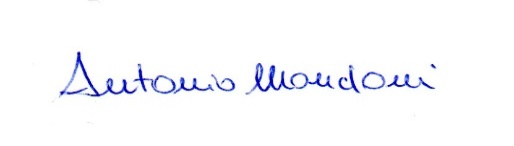 Antonio Mondoni